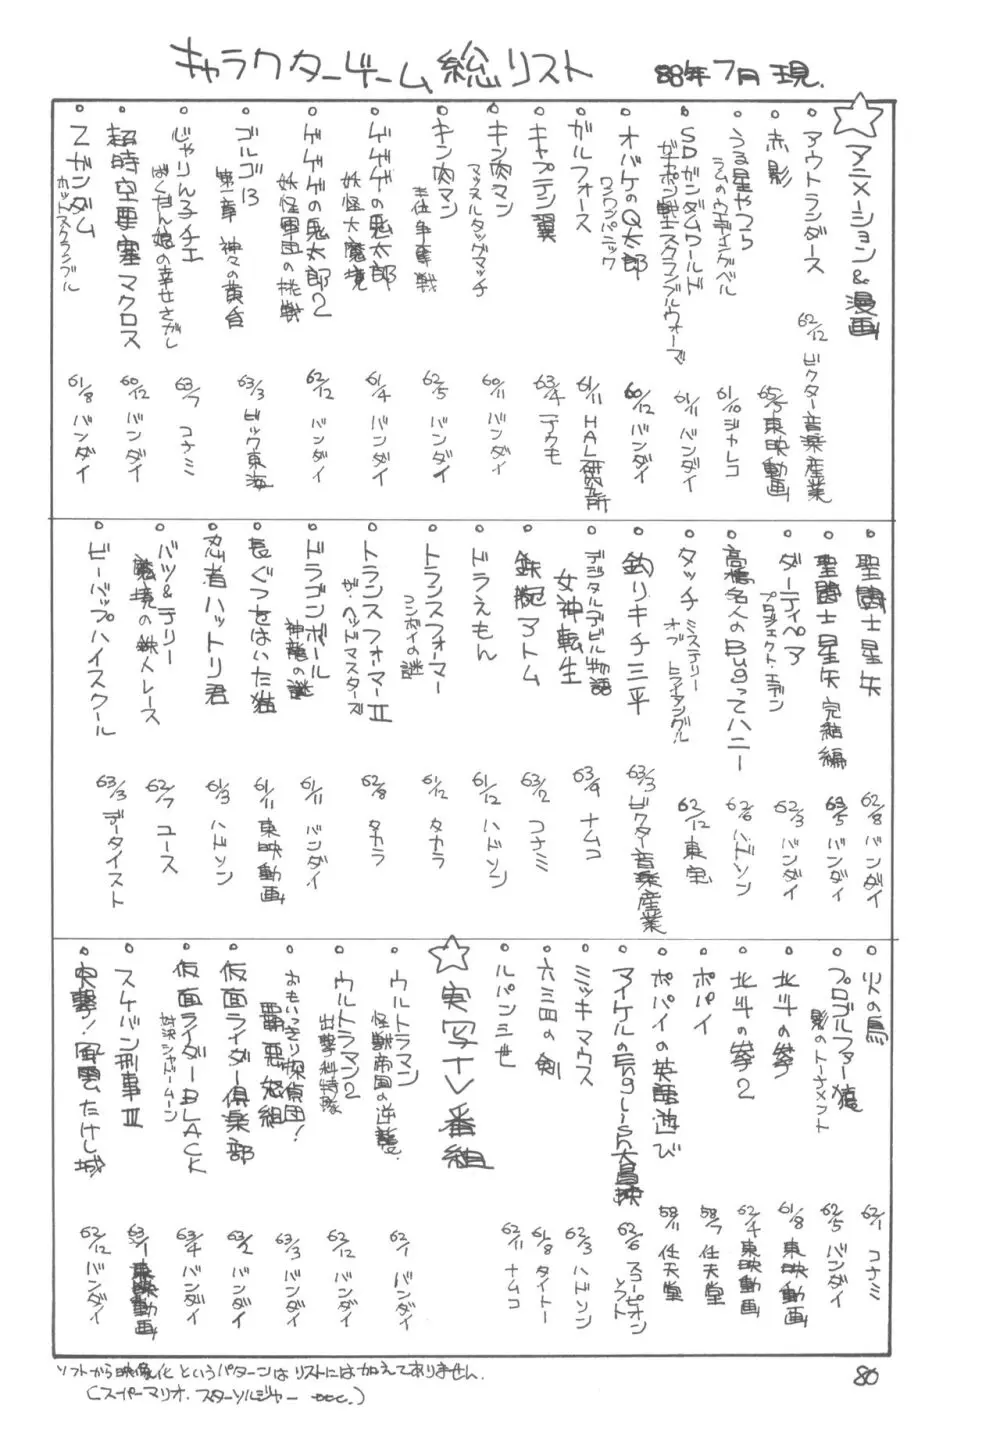 キャラクターゲーム総リスト　88年7月現.
☆アニメーション&漫画
。アウトランダース　62/12 ビクター音楽産業
。赤影　東映動画
。うる星やつら
ラムのウエディングベル　61/10 ジャレコ
。SDガンダムワールド
ガチャポン戦士スクランブルウォーズ　バンダイ
。オバケのQ太郎
ワンワンパニック　60/12 バンダイ
。ガルフォース　61/11 HAL研究所
。キャプテン翼　63/4 テクモ
。キン肉マン
マッスルタッグマッチ　60/11 バンダイ
。キン肉マン
王位争奪戦　62/5 バンダイ
。ゲゲゲの鬼太郎
妖怪大魔境　61/4 バンダイ
。ゲゲゲの鬼太郎2
妖怪軍団の挑戦　62/12 バンダイ
。ゴルゴ13
第一章 神々の黄昏　63/3 ビック東海
。じゃりん子チエ
ばくだん娘の幸せさがし　63/7 コナミ
。超時空要塞マクロス　60/12 バンダイ
。Zガンダム
ホットスクランブル　61/8 バンダイ
。聖闘士星矢　62/8 バンダイ
。聖闘士星矢 完結編　63/5 バンダイ
。ダーティペア
プロジェクト・エデン　62/3 バンダイ
。高橋名人のBugってハニー　62/6 ハドソン
。タッチ ミステリー
オブ トライアングル　62/12 東宝
。釣りキチ三平　63/3 ビクター音楽産業
。デジタルデビル物語
女神転生　63/4 ナムコ
。鉄腕アトム　63/2 コナミ
。ドラえもん　61/12 ハドソン
。トランスフォーマー
コンボイの謎　61/12 タカラ
。トランスフォーマーII
ザ・ヘッドマスターズ　62/8 タカラ
。ドラゴンボール
神龍の謎　61/11 バンダイ
。長ぐつをはいた猫　61/11 東映動画
。忍者ハットリ君　61/3 ハドソン
。バツ&テリー
魔境の鉄人レース　62/7 ユース
。ビーバップハイスクール　63/3 データイスト
。火の鳥　62/1 コナミ
。プロゴルファー猿
影のトーナメント　62/5 バンダイ
。北斗の拳　61/8 東映動画
。北斗の拳2　62/4 東映動画
。ポパイ　58/7 任天堂
。ポパイの英語遊び　58/11 任天堂
。マイケルのEnglish大冒険　62/6 スコーピオンソフト
。ミッキマウス　62/3 ハドソン
。六三四の剣　61/8 タイトー
。ルパン三世　62/11 ナムコ
☆実写TV番組
。ウルトラマン
怪獣帝国の逆襲.　62/1 バンダイ
。ウルトラマン2
出撃科特隊　62/12 バンダイ
。おもいっきり探偵団!
覇悪怒組　63/3 バンダイ
。仮面ライダー倶楽部　63/2 バンダイ
。仮面ライダーBLACK
対決シャドームーン　63/4 バンダイ
。スケバン刑事III　63/1 東映動画
。突撃!風雲たけし城　62/12 バンダイ
ソフトから映像化というパターンはリストには加えてありません.
(スーパーマリオ. スターソルジャー etc.)
80